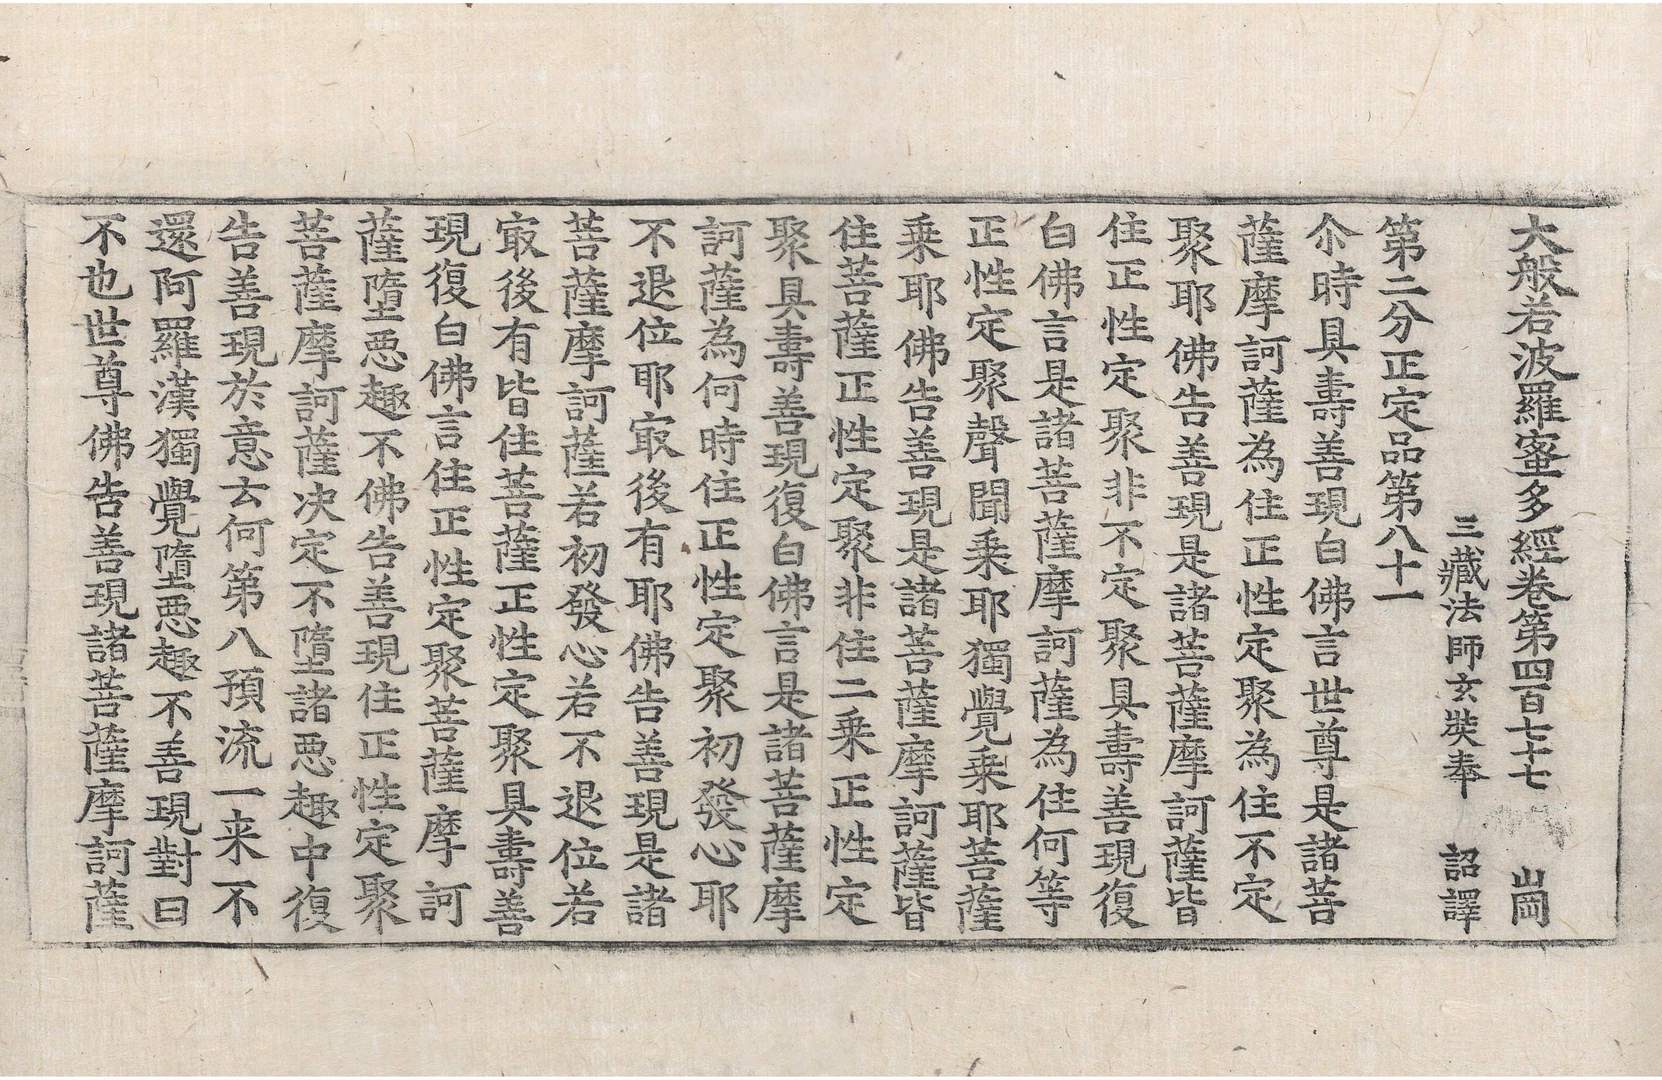 大般若波羅蜜多經卷第四百七十七 崗
三藏法師玄奘奉 詔譯
第二分正定品第八十一
尒時具壽善現白佛言世尊是諸菩
薩摩訶薩為住正性定聚為住不定
聚耶佛告善現是諸菩薩摩訶薩皆
住正性定聚非不定聚具壽善現復
白佛言是諸菩薩摩訶薩為住何等
正性定聚聲聞乗耶獨覺乗耶菩薩
乗耶佛告善現是諸菩薩摩訶薩皆
住菩薩正性定聚非住二乗正性定
聚具壽善現復白佛言是諸菩薩摩
訶薩為何時住正性定聚初發心耶
不退位耶㝡後有耶佛告善現是諸
菩薩摩訶薩若初發心若不退位若
㝡後有皆住菩薩正性定聚具壽善
現復白佛言住正性定聚菩薩摩訶
薩墮惡趣不佛告善現住正性定聚
菩薩摩訶薩决定不墮諸惡趣中復
告善現於意云何第八預流一来不
還阿羅漢獨覺墮惡趣不善現對曰
不也世尊佛告善現諸菩薩摩訶薩